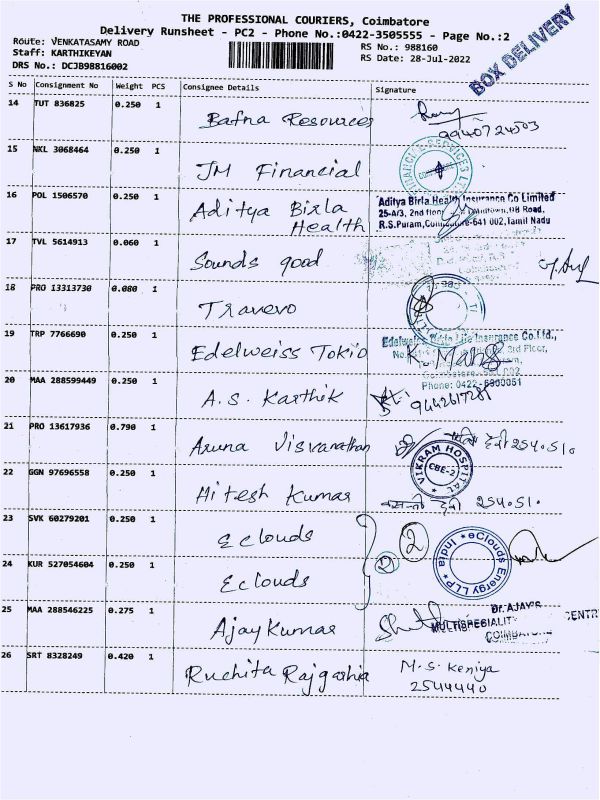 THE PROFESSIONAL COURIERS, Coimbatore
Delivery Runsheet - PC2 - Phone No.:0422-3505555 - Page No.:2
Route: VENKATASAMY ROAD
RS No.: 988160
Staff: KARTHIKEYAN
RS Date: 28-Jul-2022
DRS No.: DCJB98816002
BOX DELIVERY
S No Consignment No Weight PCS Consignee Details Signature
14 TUT 836825 0.250 1 Bafna Resources
9940724503
15 NKL 3068464 0.250 1 JM Financial
16 POL 1506570 0.250 1 Aditya Birla Health
Aditya Birla Health Insurance Co Limited
25-A/3, 2nd floor
R.S.Puram, Coimbatore-641 002, Tamil Nadu
17 TVL 5614913 0.060 1 Sounds good
18 PRO 13313730 0.080 1 Travevo
19 TRP 7766690 0.250 1 Edelweiss Tokio
Edelweiss Life Insurance Co.Ltd.,
3rd Floor,
Phone: 0422-
20 MAA 288599449 0.250 1 A.S. Karthik
21 PRO 13617936 0.790 1 Aruna Visvanathan
254051०
VIKRAM HOSPITAL
CBE-2
22 GGN 97696558 0.250 1 Hitesh Kumar
23 SVK 60279201 0.250 1 Eclouds
2
eClouds Energy LLP * India *
24 KUR 527054604 0.250 1 Eclouds
2
25 MAA 288546225 0.275 1 Ajay Kumar
Dr. AJAY'S
MULTISPECIALITY CENTR
COIMBATORE
26 SRT 8328249 0.420 1 Ruchita Rajgarhia
M.S. Keniya
2544440